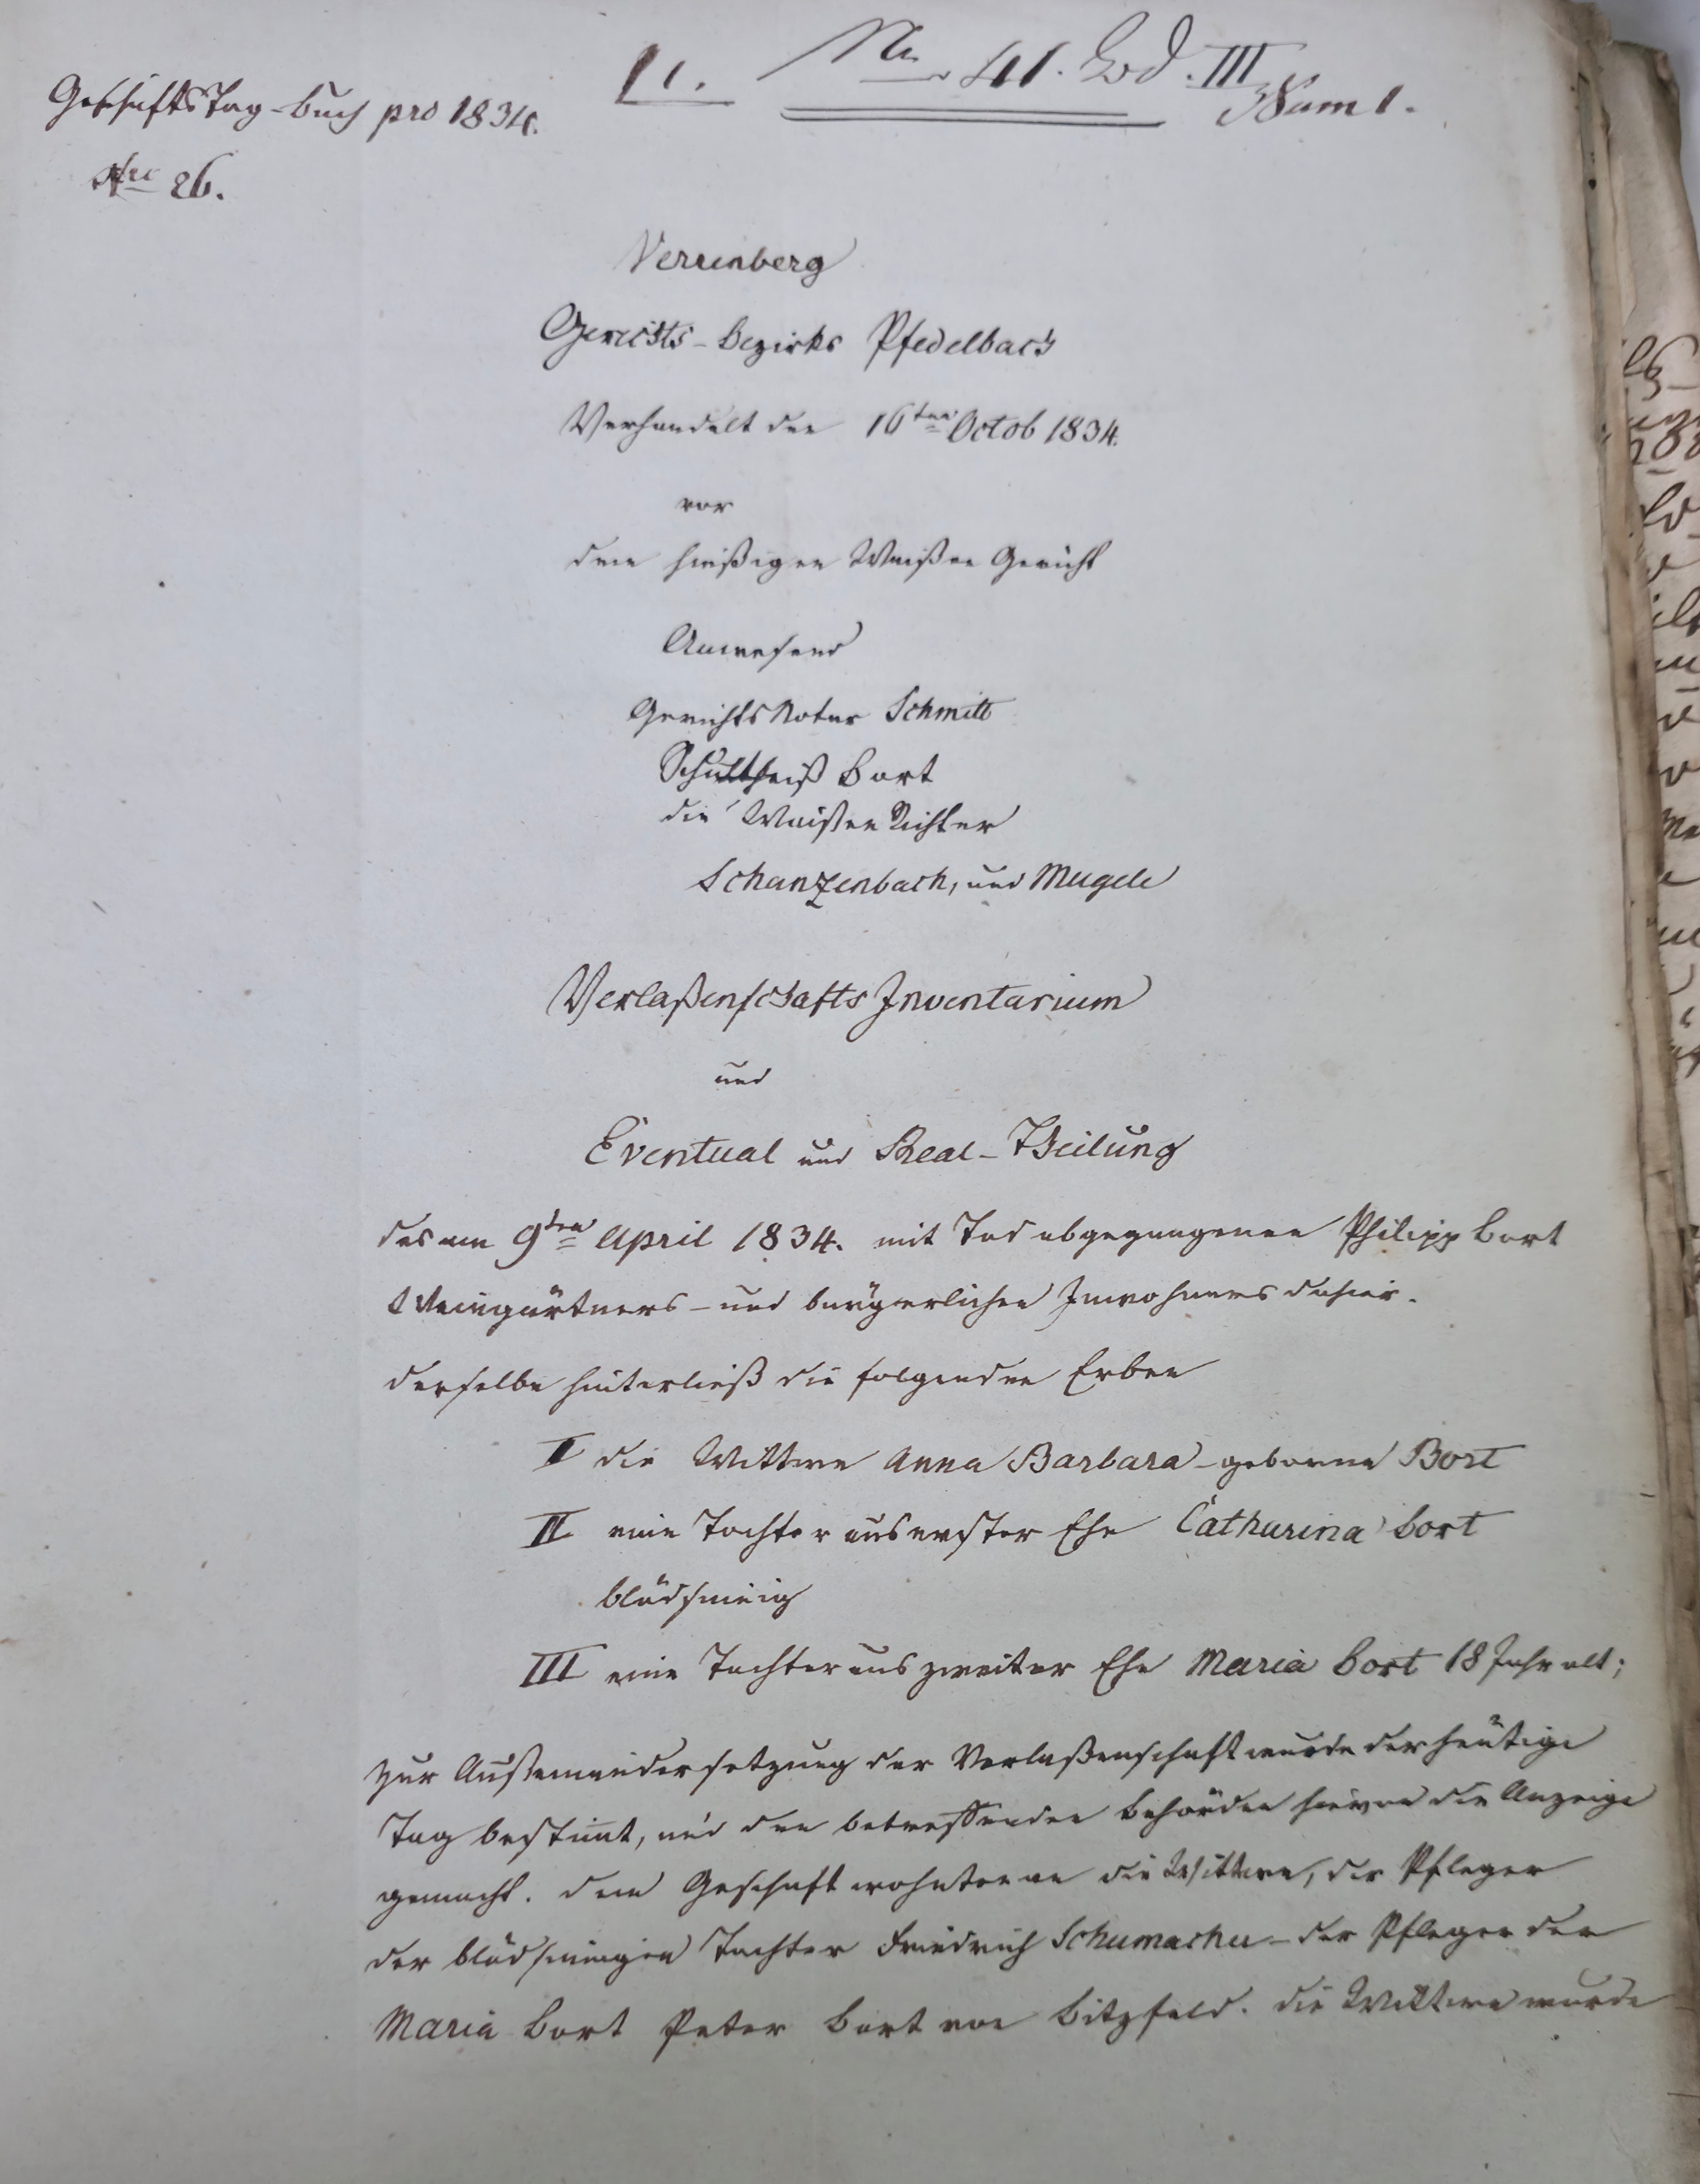 Geschäfts Tag-buch pro 1834.
Nro 26.
11. Nro 41. Bd. III
Num 1.
Verrenberg
Gerichts-Bezirks Pfedelbach
Verhandelt den 16ten Octob 1834.
vor
dem hießigen Waißen Gericht
Anwesend
Gerichts Notar Schmitt
Schultheiß Bort
die Waißen Richter
Schanzenbach, und Mugele
Verlaßenschafts Inventarium
und
Eventual und Real-Theilung
des am 9ten April 1834. mit Tod abgegangenen Philipp Bort
Weingärtners- und bürgerlichen Inwohners dahier.
derselbe hinterließ die folgenden Erben
I die Wittwe Anna Barbara-geborne Bort
II eine Tochter aus erster Ehe Catharina Bort
blödsinnig
III eine Tochter aus zweiter Ehe Maria Bort 18 Jahr alt;
zur Außeinandersetzung der Verlaßenschaft wurde der heutige
Tag bestimt, und den betreffenden Behörden hievon die Anzeige
gemacht. dem Geschäft wohnten an die Wittwe, der Pfleger
der blödsinnigen Tochter Friedrich Schumacher-der Pfleger der
Maria Bort Peter Bort von Bitzfeld. die Wittwe wurde